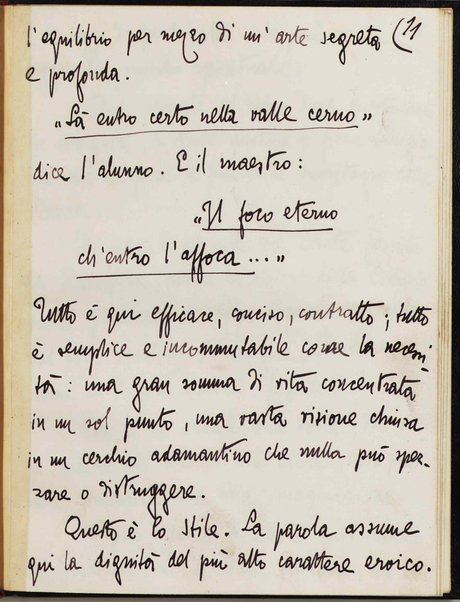 l'equilibrio per mezzo di un'arte segreta (11
e profonda.
„Là entro certo nella valle cerno„
dice l'alunno. E il maestro:
„Il foco eterno
ch'entro l'affoca..."
Tutto è qui efficace, conciso, contratto; tutto
è semplice e incommutabile come la necessi-
tà: una gran somma di vita concentrata
in un sol punto, una vasta visione chiusa
in un cerchio adamantino che nulla può spez-
zare o distruggere.
Questo è lo Stile. La parola assume
qui la dignità del più alto carattere eroico.